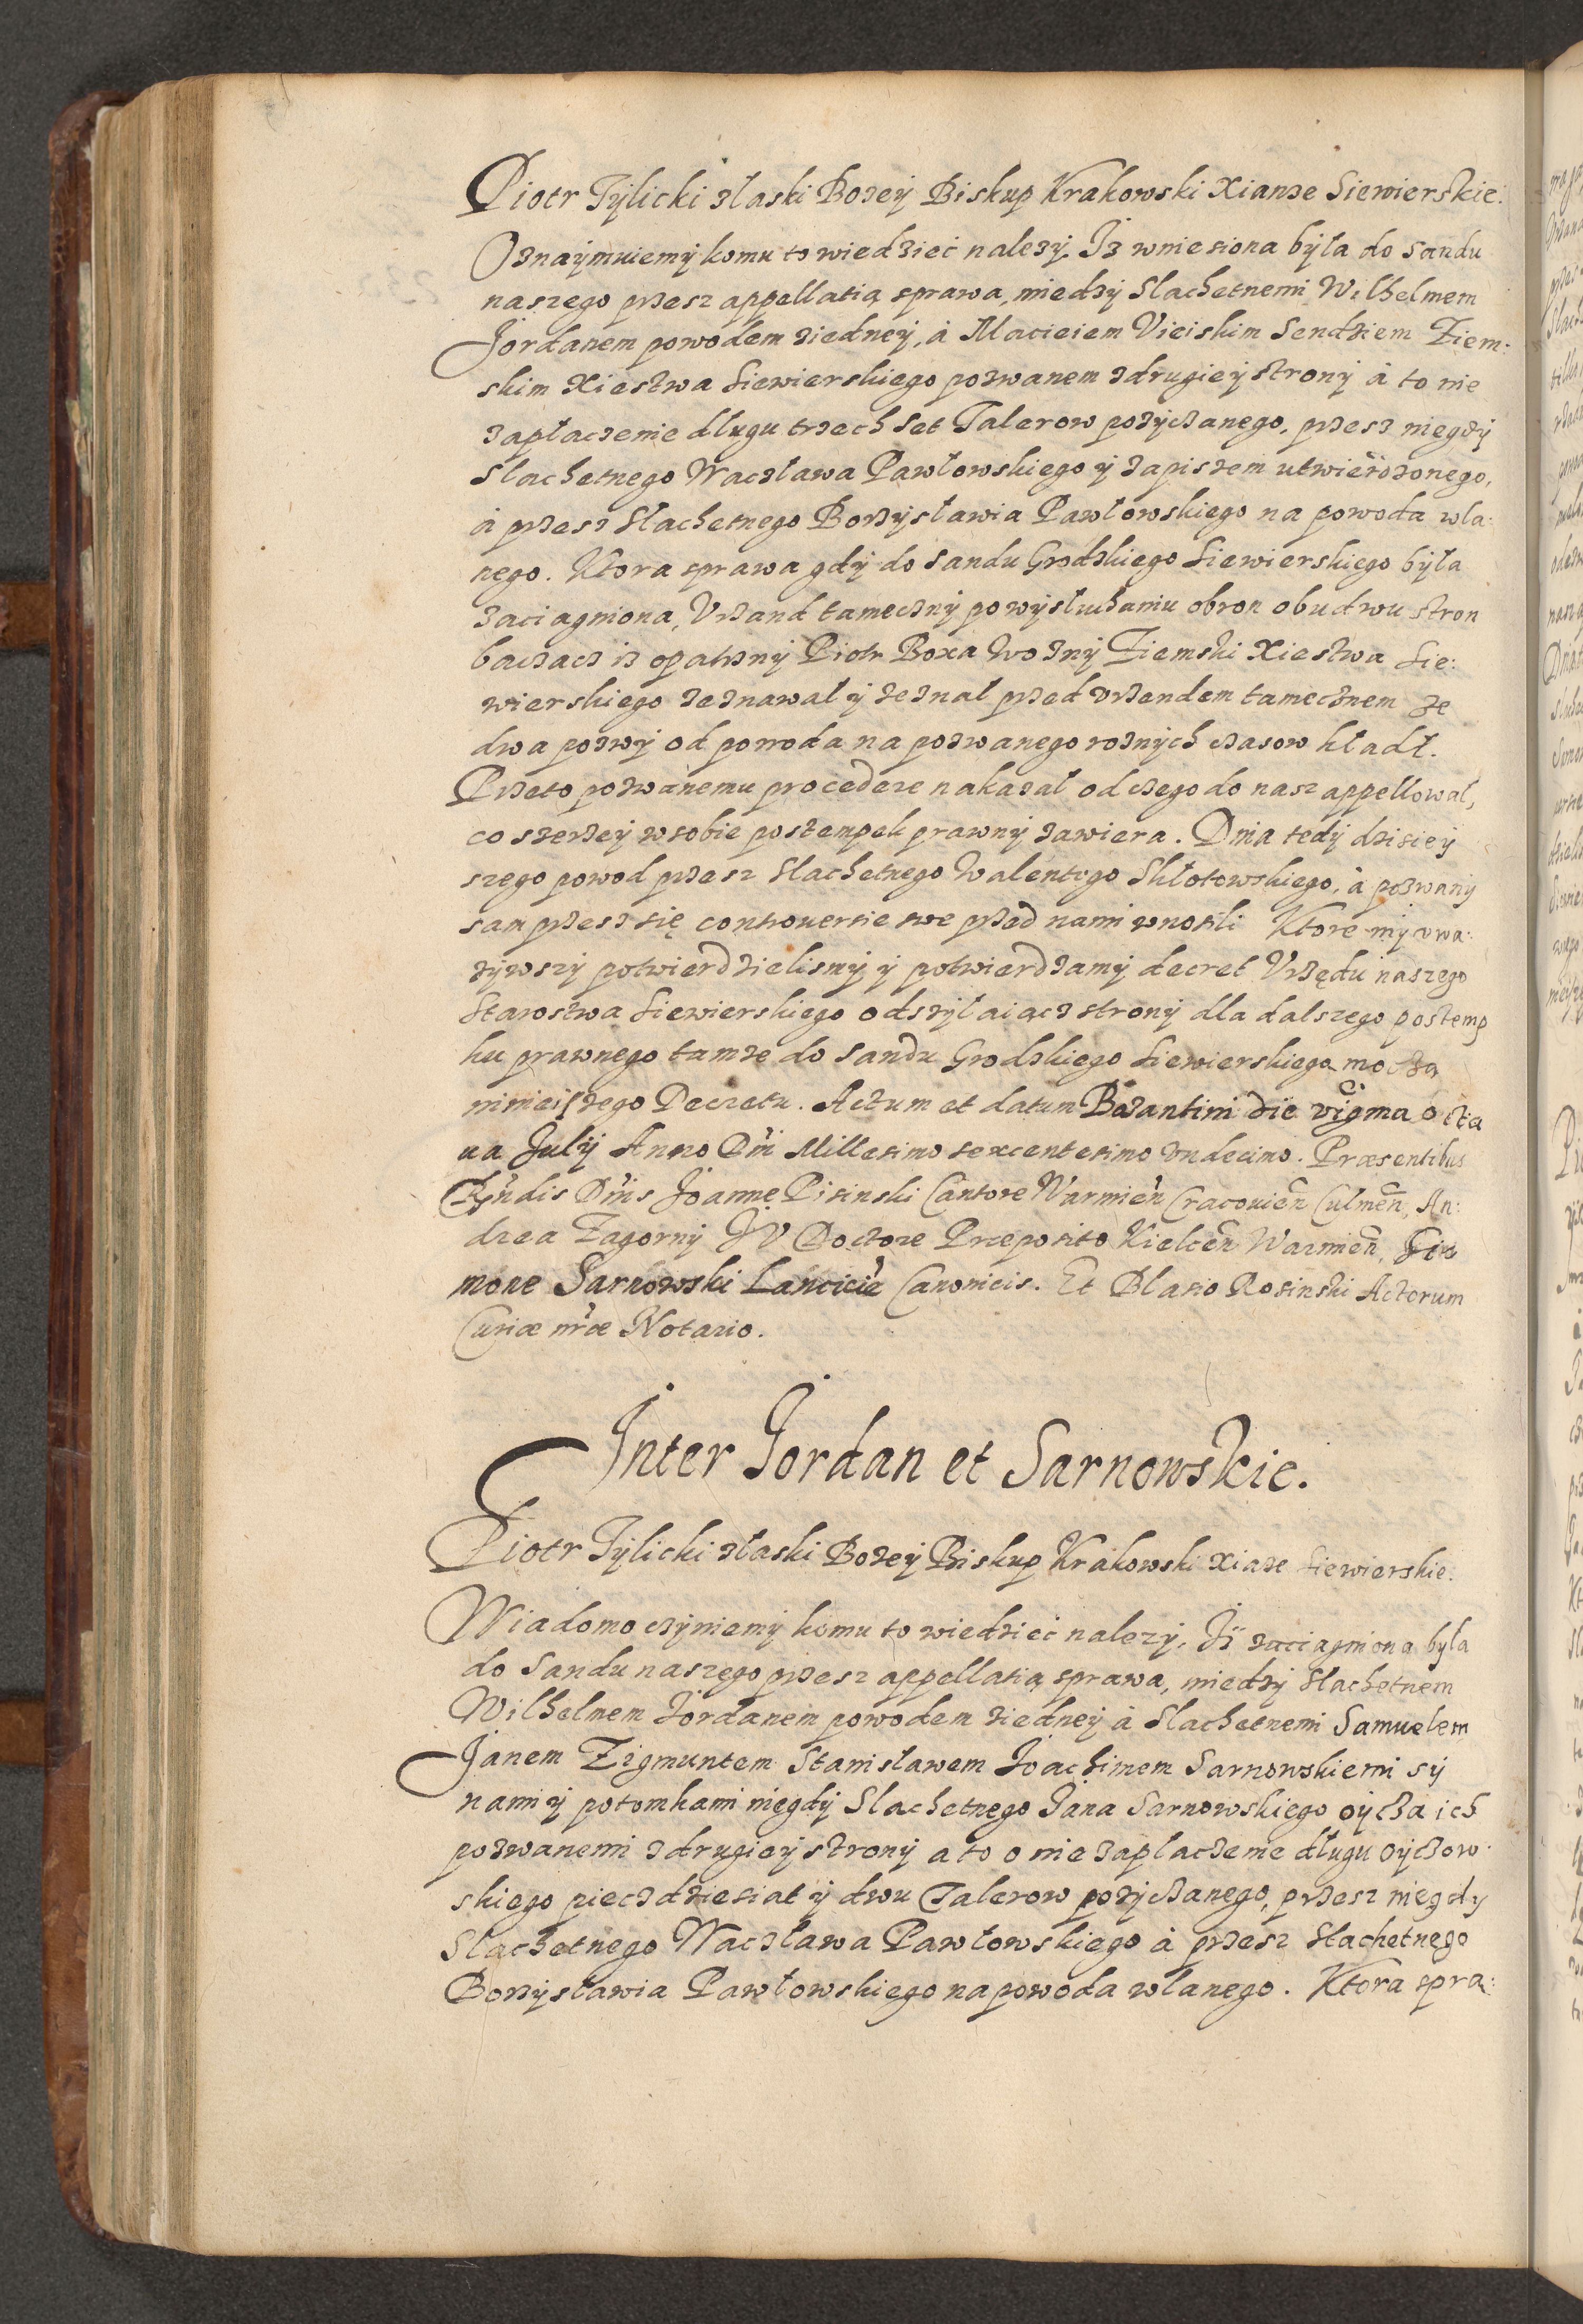 Piotr Tÿlicki złaski Bozeÿ Biskup Krakowski Xianze Siewierskie.
Oznaÿmuiemÿ komu to wiedzieć nalezÿ. Iz wniesiona bÿła do Sandu
naszego przesz appellatią sprawa, miedzÿ Slachetnemi Wilhelmem
Jordanem powodem ziedneÿ, à Macieiem Uieiskim Sendziem Ziem:
skim Xiestwa Siewierskiego pozwanem zdrugieÿ stronÿ à to nie
zapłaczenie długu trzech set Talerow pozÿczanego, przesz niegdÿ
Slachetnego Waczława Pawłowskiego ÿ zapiszem utwierdzonego,
à przesz Slachetnego Borzÿsławia Pawłowskiego na powoda wla:
nego. Ktora sprawa gdÿ do Sandu Grodzkiego Siewierskiego bÿła
zaciagniona, Vrzand tamecznÿ powÿsłuchaniu obron obudwu stron
baczacz iz opatrznÿ Piotr Boxa Woznÿ Ziemski Xiestwa Sie:
wierskiego zeznawał ÿ zeznał przed vrzendem tamecznem ze
dwa pozwÿ od powoda na pozwanego roznÿch czasow kładł.
Przeto pozwanemu procedere nakazał od czego do nasz appellował,
co szerzeÿ wsobie postempek prawnÿ zawiera. Dnia tedÿ dzisieÿ
szego powod przesz Slachetnego Walentego Skłotowskiego, à pozwanÿ
sam przesz się controuersie swe przed nami wnosili Ktore mÿ vwa:
zÿwszÿ potwierdzielismÿ ÿ potwierdzamÿ decret Vrzędu naszego
Starostwa Siewierskiego odszÿłaiącz stronÿ dla dalszego postemp
ku prawnego tamze do Sandu Grodzkiego Siewierskiego moczą
ninieiszego Decretu. Actum et datum Bozantini die vigma octa
ua Julÿ Anno Dni Millesimo sexcentesimo vndecimo. Præsentibus
Rndis Dnis Joanne Pisinski Cantore Warmien Cracouien Culmen, An:
drea Zagornÿ JV Doctore Preposito Kielcen Warmien, Si
mone Sarnowski Lancicien Canonicis. Et Blasio Rosinski Actorum
Curiæ nræ Notario.
Inter Jordan et Sarnowskie.
Piotr Tÿlicki złaski Bozeÿ Biskup Krakowski Xiaze Siewierskie.
Wiadomo czÿniemÿ komu to wiedzieć nalezÿ, Iz zaciagniona była
do Sandu naszego przesz appellatią sprawa, miedzÿ Slachetnem
Wilhelmem Jordanem powodem ziedneÿ à Slachetnemi Samuelem
Janem Zigmuntem Stanisławem Joachimem Sarnowskiemi sÿ
nami ÿ potomkami niegdÿ Slachetnego Jana Sarnowskiego oÿcza ich
pozwanemi zdrugieÿ stronÿ a to o nie zapłaczenie długu oÿczow
skiego piecz dziesiat ÿ dwu Talerow pozÿczanego, przesz niegdy
Slachetnego Waczława Pawłowskiego à przesz Slachetnego
Borzÿsławia Pawłowskiego na powoda wlanego. Ktora spra: